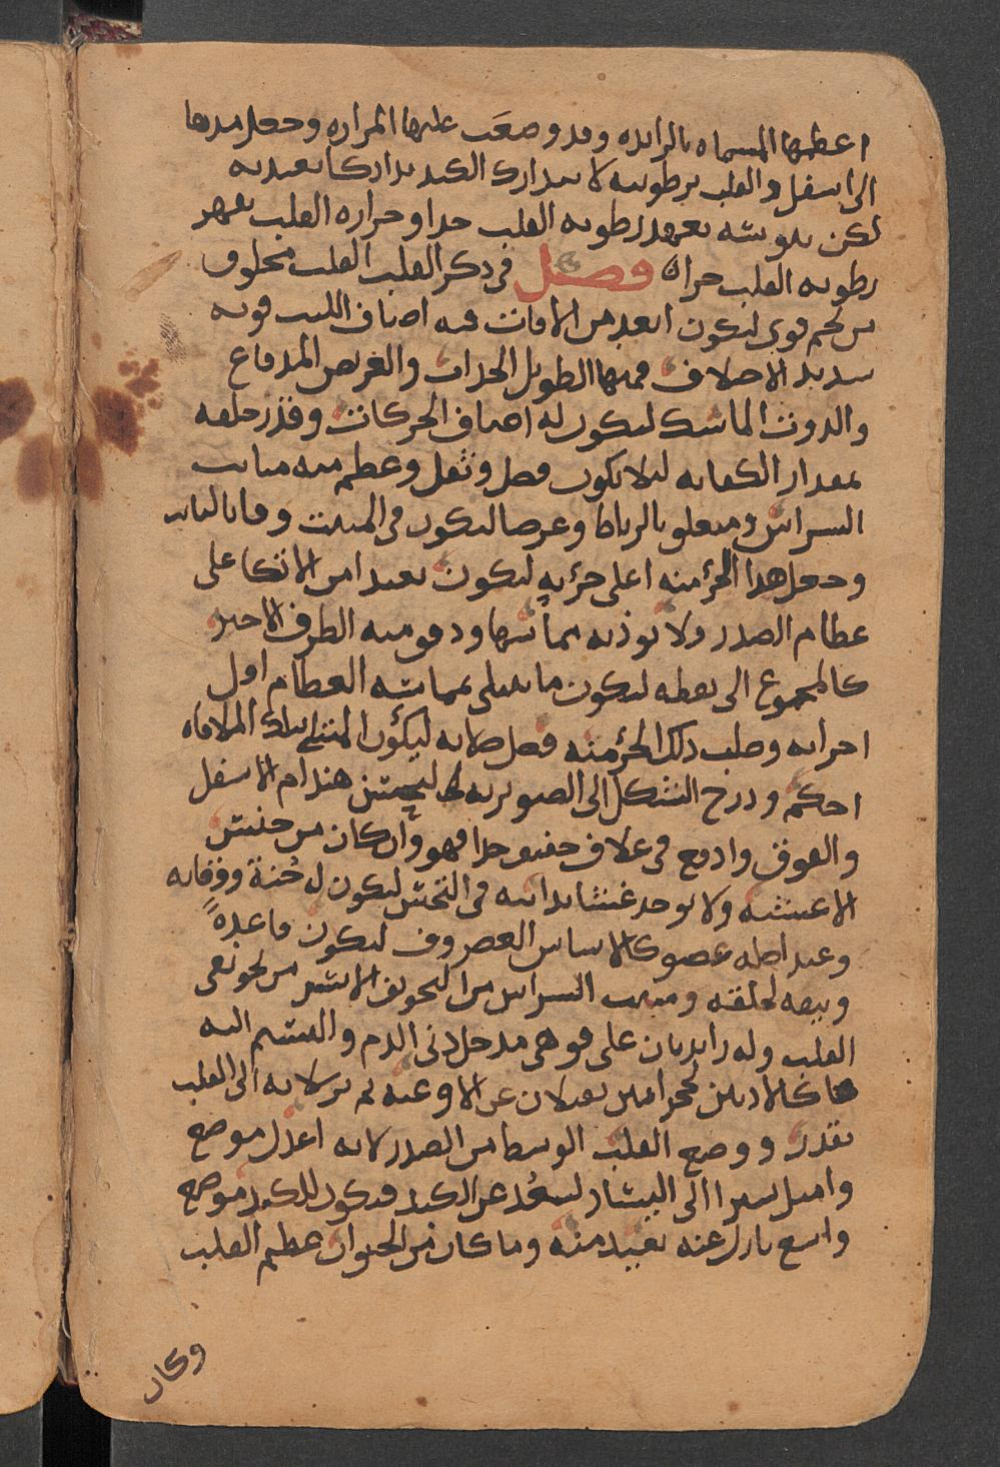 اعظمها المسماه بالزايده وقد وضعَت عليها المراره وجعل مدها
الى اسفل والقلب برطوبته لا يتدارك الكبد تداركا يعتد به
لكن يبوسته تقهر رطوبه القلب جدا وحراره القلب تقهر
رطوبه القلب جدا ه فصل في ذكر القلب القلب مخلوق
من لحم قوى ليكون ابعد من الافات فيه اصناف الليف قويه
شديد الاختلاف فمنها الطويل الجذاب والعريض الدفاع
والوروب الماسك ليكون له اصناف الحركات وقدر خلقه
بمقدار الكفايه ليلا يكون فضل وثقل وعظم منه منابت
الشرايين ومتعلق بالرباط وعرضا ليكون في المنبت وقايا لنابت
وجعل هذا الجزؤ منه اعلى جزؤيه ليكون بعيدا من الاتكا على
عظام الصدر ولا توذيه مماستها ودقق منه الطرف الاخير
كالمجموع الى نقطه ليكون ما يبتلى بمماسته العظام اول
اجزايه وصلب ذلك الجزؤ منه فضل صلابه ليكون المبتلى بتلك الملاقاه
احكم ودرج الشكل الى الصنوبريه ليحسن هندام الاسفل
والفوق واودع في غلاف حصين جدا فهو وان كان من جنس
الاغشيه ولا يوجد غشا يدانيه في الثخن ليكون له جُنة ووقايه
وعند اصله عضو كالاساس الغضروف ليكون قاعدةً
وثيقه لخلقته ومنبت الشراين من التجويف الايسر من تجويفى
القلب وله زايدتان على فوهتى مدخل ادنى الدم والنسيم اليه
كالاذنين لحزانتين يقبلان عن الاوعيه ثم يرسلانه الى القلب
بقدر ووضع القلب الوسط من الصدر لانه اعدل موضع
واميل يسيرا الى اليسار ليبعُد عن الكبد فيكون للكبد موضع
واسع نازل عنه بعيد منه وما كان من الحيوان عظيم القلب
وكان